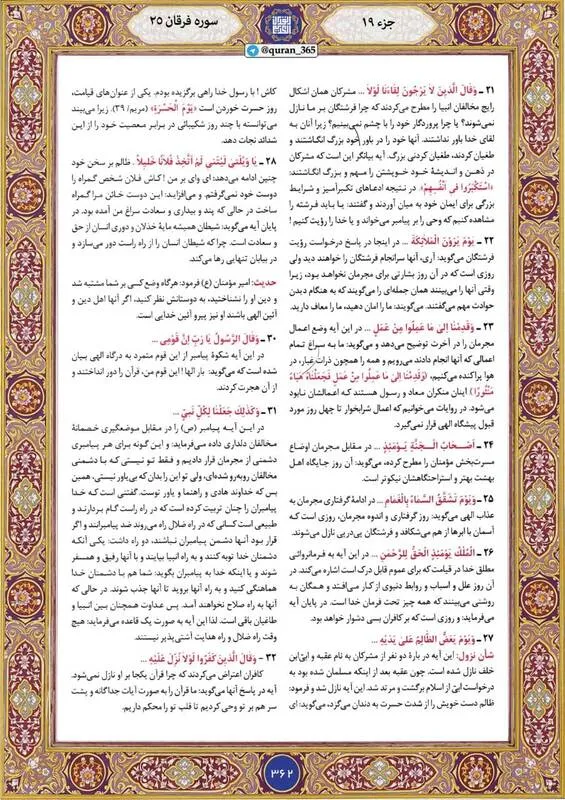 سوره فرقان ۲۵
جزء ۱۹
@quran_365
۲۱ ـ وَقَالَ الَّذِینَ لَا یَرْجُونَ لِقَاءَنَا لَوْلَا ... مشرکان همان اشکال
رایج مخالفان انبیا را مطرح می‌کردند که چرا فرشتگان بر ما نازل
نمی‌شوند؟ یا چرا پروردگار خود را با چشم نمی‌بینیم؟ زیرا آنان به
لقای خدا باور نداشتند. آنها خود را در باور خود بزرگ انگاشتند و
طغیان کردند، طغیان کردنی بزرگ. آیه بیانگر این است که مشرکان
در ذهن و اندیشهٔ خود خویشتن را مهم و بزرگ انگاشتند:
﴿اسْتَکْبَرُوا فِی أَنْفُسِهِمْ﴾. در نتیجه ادعاهای تکبرآمیز و شرایط
بزرگی برای ایمان خود به میان آوردند و گفتند: یا باید فرشته را
مشاهده کنیم که وحی را بر پیامبر می‌خواند و یا خدا را رؤیت کنیم!
۲۲ ـ یَوْمَ یَرَوْنَ الْمَلَائِکَةَ ... در اینجا در پاسخ درخواست رؤیت
فرشتگان می‌گوید: آری، آنها سرانجام فرشتگان را خواهند دید ولی
روزی است که در آن روز بشارتی برای مجرمان نخواهد بود، زیرا
وقتی آنها را می‌بینند همان جمله‌ای را می‌گویند که به هنگام دیدن
حوادث مهم می‌گفتند. می‌گویند: ما را امان دهید، ما را معاف دارید.
۲۳ ـ وَقَدِمْنَا إِلَی مَا عَمِلُوا مِنْ عَمَلٍ ... در این آیه وضع اعمال
مجرمان را در آخرت توضیح می‌دهد و می‌گوید: ما به سراغ تمام
اعمالی که آنها انجام دادند می‌رویم و همه را همچون ذرات غبار، در
هوا پراکنده می‌کنیم، ﴿وَقَدِمْنَا إِلَی مَا عَمِلُوا مِنْ عَمَلٍ فَجَعَلْنَاهُ هَبَاءً
مَنْثُورًا﴾ اینان منکران معاد و رسول هستند که اعمالشان نابود
می‌شود. در روایات می‌خوانیم که اعمال شرابخوار تا چهل روز مورد
قبول پیشگاه الهی قرار نمی‌گیرد.
۲۴ ـ أَصْحَابُ الْجَنَّةِ یَوْمَئِذٍ ... در مقابل مجرمان اوضاع
مسرت‌بخش مؤمنان را مطرح کرده، می‌گوید: آن روز جایگاه اهل
بهشت بهتر و استراحتگاهشان نیکوتر است.
۲۵ ـ وَیَوْمَ تَشَقَّقُ السَّمَاءُ بِالْغَمَامِ ... در ادامهٔ گرفتاری مجرمان به
عذاب الهی می‌گوید: روز گرفتاری و اندوه مجرمان، روزی است که
آسمان با ابرها از هم می‌شکافد و فرشتگان پی‌درپی نازل می‌شوند.
۲۶ ـ الْمُلْکُ یَوْمَئِذٍ الْحَقُّ لِلرَّحْمَنِ ... در این آیه به فرمانروائی
مطلق خدا در قیامت که برای عموم قابل درک است اشاره می‌کند. در
آن روز علل و اسباب و روابط دنیوی از کار می‌افتند و همگان به
روشنی می‌بینند که همه چیز تحت فرمان خدا است. در پایان آیه
می‌فرماید: و روزی است که بر کافران بسی دشوار خواهد بود.
۲۷ ـ وَیَوْمَ یَعَضُّ الظَّالِمُ عَلَی یَدَیْهِ ...
شأن نزول: این آیه در بارهٔ دو نفر از مشرکان به نام عقبه و اُبیّ‌ابن
خلف نازل شده است. چون عقبه بعد از اینکه مسلمان شده بود به
درخواست اُبیّ از اسلام برگشت و مرتد شد. این آیه نازل شد و فرمود:
ظالم دست خویش را از شدت حسرت به دندان می‌گزد، می‌گوید: ای
کاش! با رسول خدا راهی برگزیده بودم. یکی از عنوان‌های قیامت،
روز حسرت خوردن است ﴿یَوْمَ الْحَسْرَةِ﴾ (مریم/ ۳۹). زیرا می‌بیند
می‌توانسته با چند روز شکیبائی در برابر معصیت خود را از این
شدائد نجات دهد.
۲۸ ـ یَا وَیْلَتَی لَیْتَنِی لَمْ أَتَّخِذْ فُلَانًا خَلِیلًا. ظالم بر سخن خود
چنین ادامه می‌دهد: ای وای بر من! کاش فلان شخص گمراه را
دوست خود نمی‌گرفتم. و می‌افزاید: این دوست خائن مرا گمراه
ساخت در حالی که پند و بیداری و سعادت سراغ من آمده بود. در
پایان آیه می‌گوید: شیطان همیشه مایهٔ خذلان و دوری انسان از حق
و سعادت است. چراکه شیطان انسان را از راه راست دور می‌سازد و
در بیابان تنهایی رها می‌کند.
حدیث: امیر مؤمنان (ع) فرمود: هرگاه وضع کسی بر شما مشتبه شد
و دین او را نشناختید، به دوستانش نظر کنید، اگر آنها اهل دین و
آئین الهی باشند او نیز پیرو آئین خدایی است.
۳۰ ـ وَقَالَ الرَّسُولُ یَا رَبِّ إِنَّ قَوْمِی ...
در این آیه شکوهٔ پیامبر از این قوم متمرد به درگاه الهی بیان
شده است که می‌گوید: بار الها! این قوم من، قرآن را دور انداختند و
از آن هجرت کردند.
۳۱ ـ وَکَذَلِکَ جَعَلْنَا لِکُلِّ نَبِیٍّ ...
در این آیه پیامبر (ص) را در مقابل موضعگیری خصمانهٔ
مخالفان دلداری داده می‌فرماید: و این گونه برای هر پیامبری
دشمنی از مجرمان قرار دادیم و فقط تو نیستی که با دشمنی
مخالفان روبه‌رو شده‌ای، ولی تو این را بدان که بی‌یاور نیستی. همین
بس که خداوند هادی و راهنما و یاور توست. گفتنی است که خدا
پیامبران را چنان تربیت کرده است که در راه راست گام بردارند و
طبیعی است کسانی که در راه ضلال راه می‌روند ضد پیامبرانند و اگر
قرار بود آنها دشمن پیامبران نباشند، دو راه داشت: یکی آنکه
دشمنان خدا توبه کنند و به راه انبیا بیایند و با آنها رفیق و همسفر
شوند و یا اینکه خدا به پیامبران بگوید: شما هم با دشمنان خدا
هماهنگی کنید و به راه آنها بروید تا آنها جذب شوند. در حالی که
آنها به راه صلاح نخواهند آمد. پس عداوت همچنان بین انبیا و
طاغیان باقی است. لذا این آیه به صورت یک قاعده می‌فرماید: هیچ
وقت راه ضلال و راه هدایت آشتی‌پذیر نیستند.
۳۲ ـ وَقَالَ الَّذِینَ کَفَرُوا لَوْلَا نُزِّلَ عَلَیْهِ ...
کافران اعتراض می‌کردند که چرا قرآن یکجا بر او نازل نمی‌شود.
آیه در پاسخ آنها می‌گوید: ما قرآن را به صورت آیات جداگانه و پشت
سر هم بر تو وحی کردیم تا قلب تو را محکم داریم.
۳۶۲